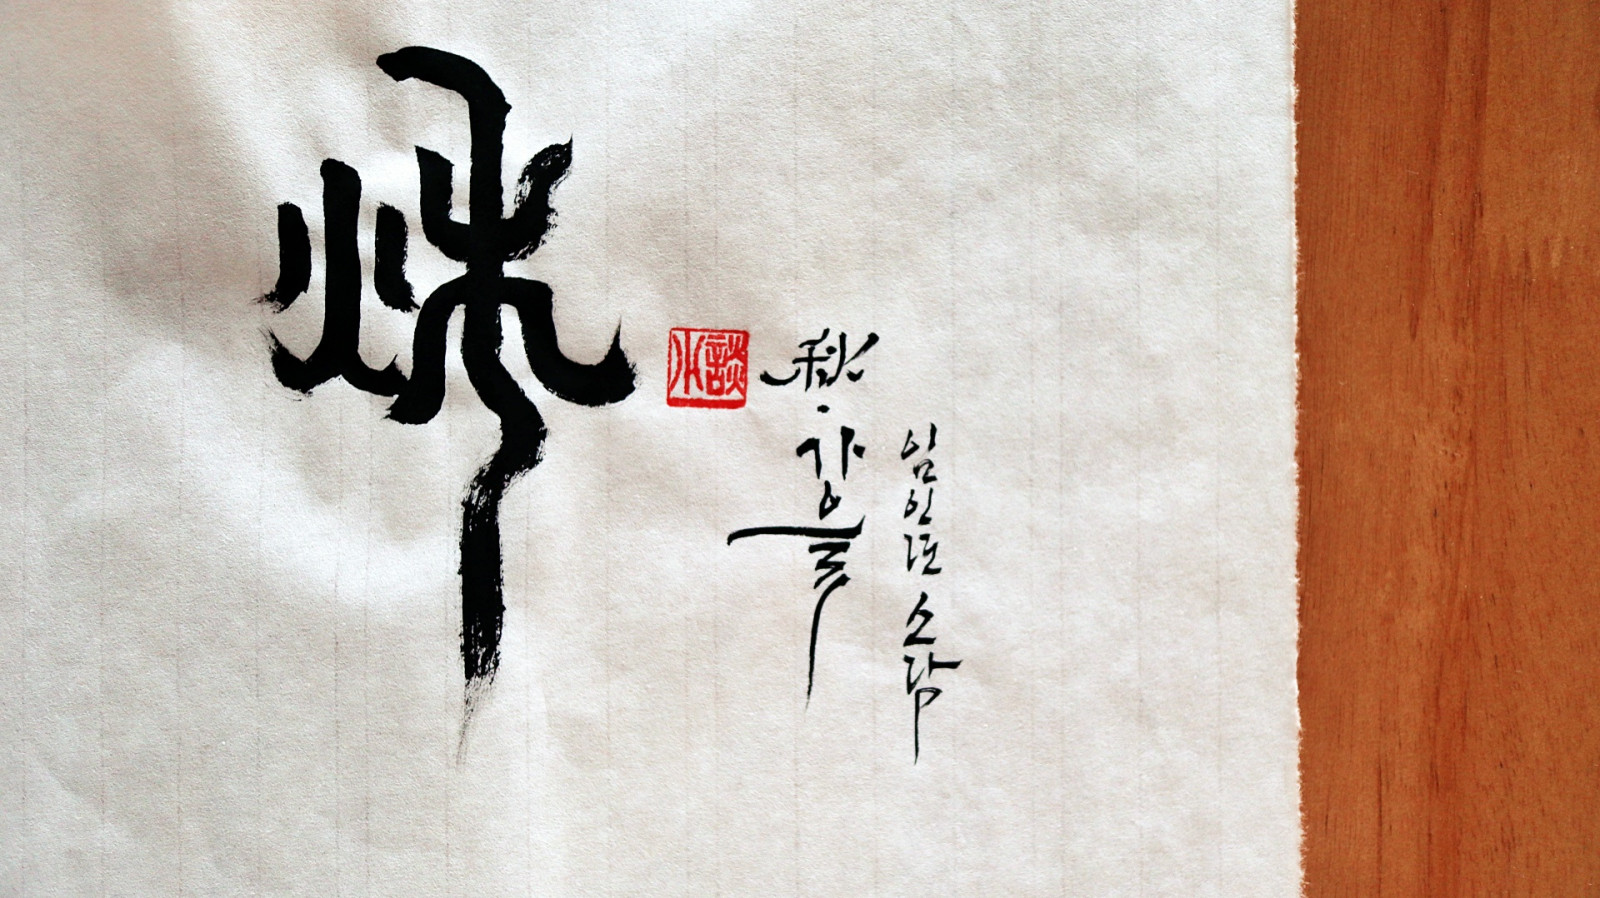 秌
小談
秋·가을
임인년 소담